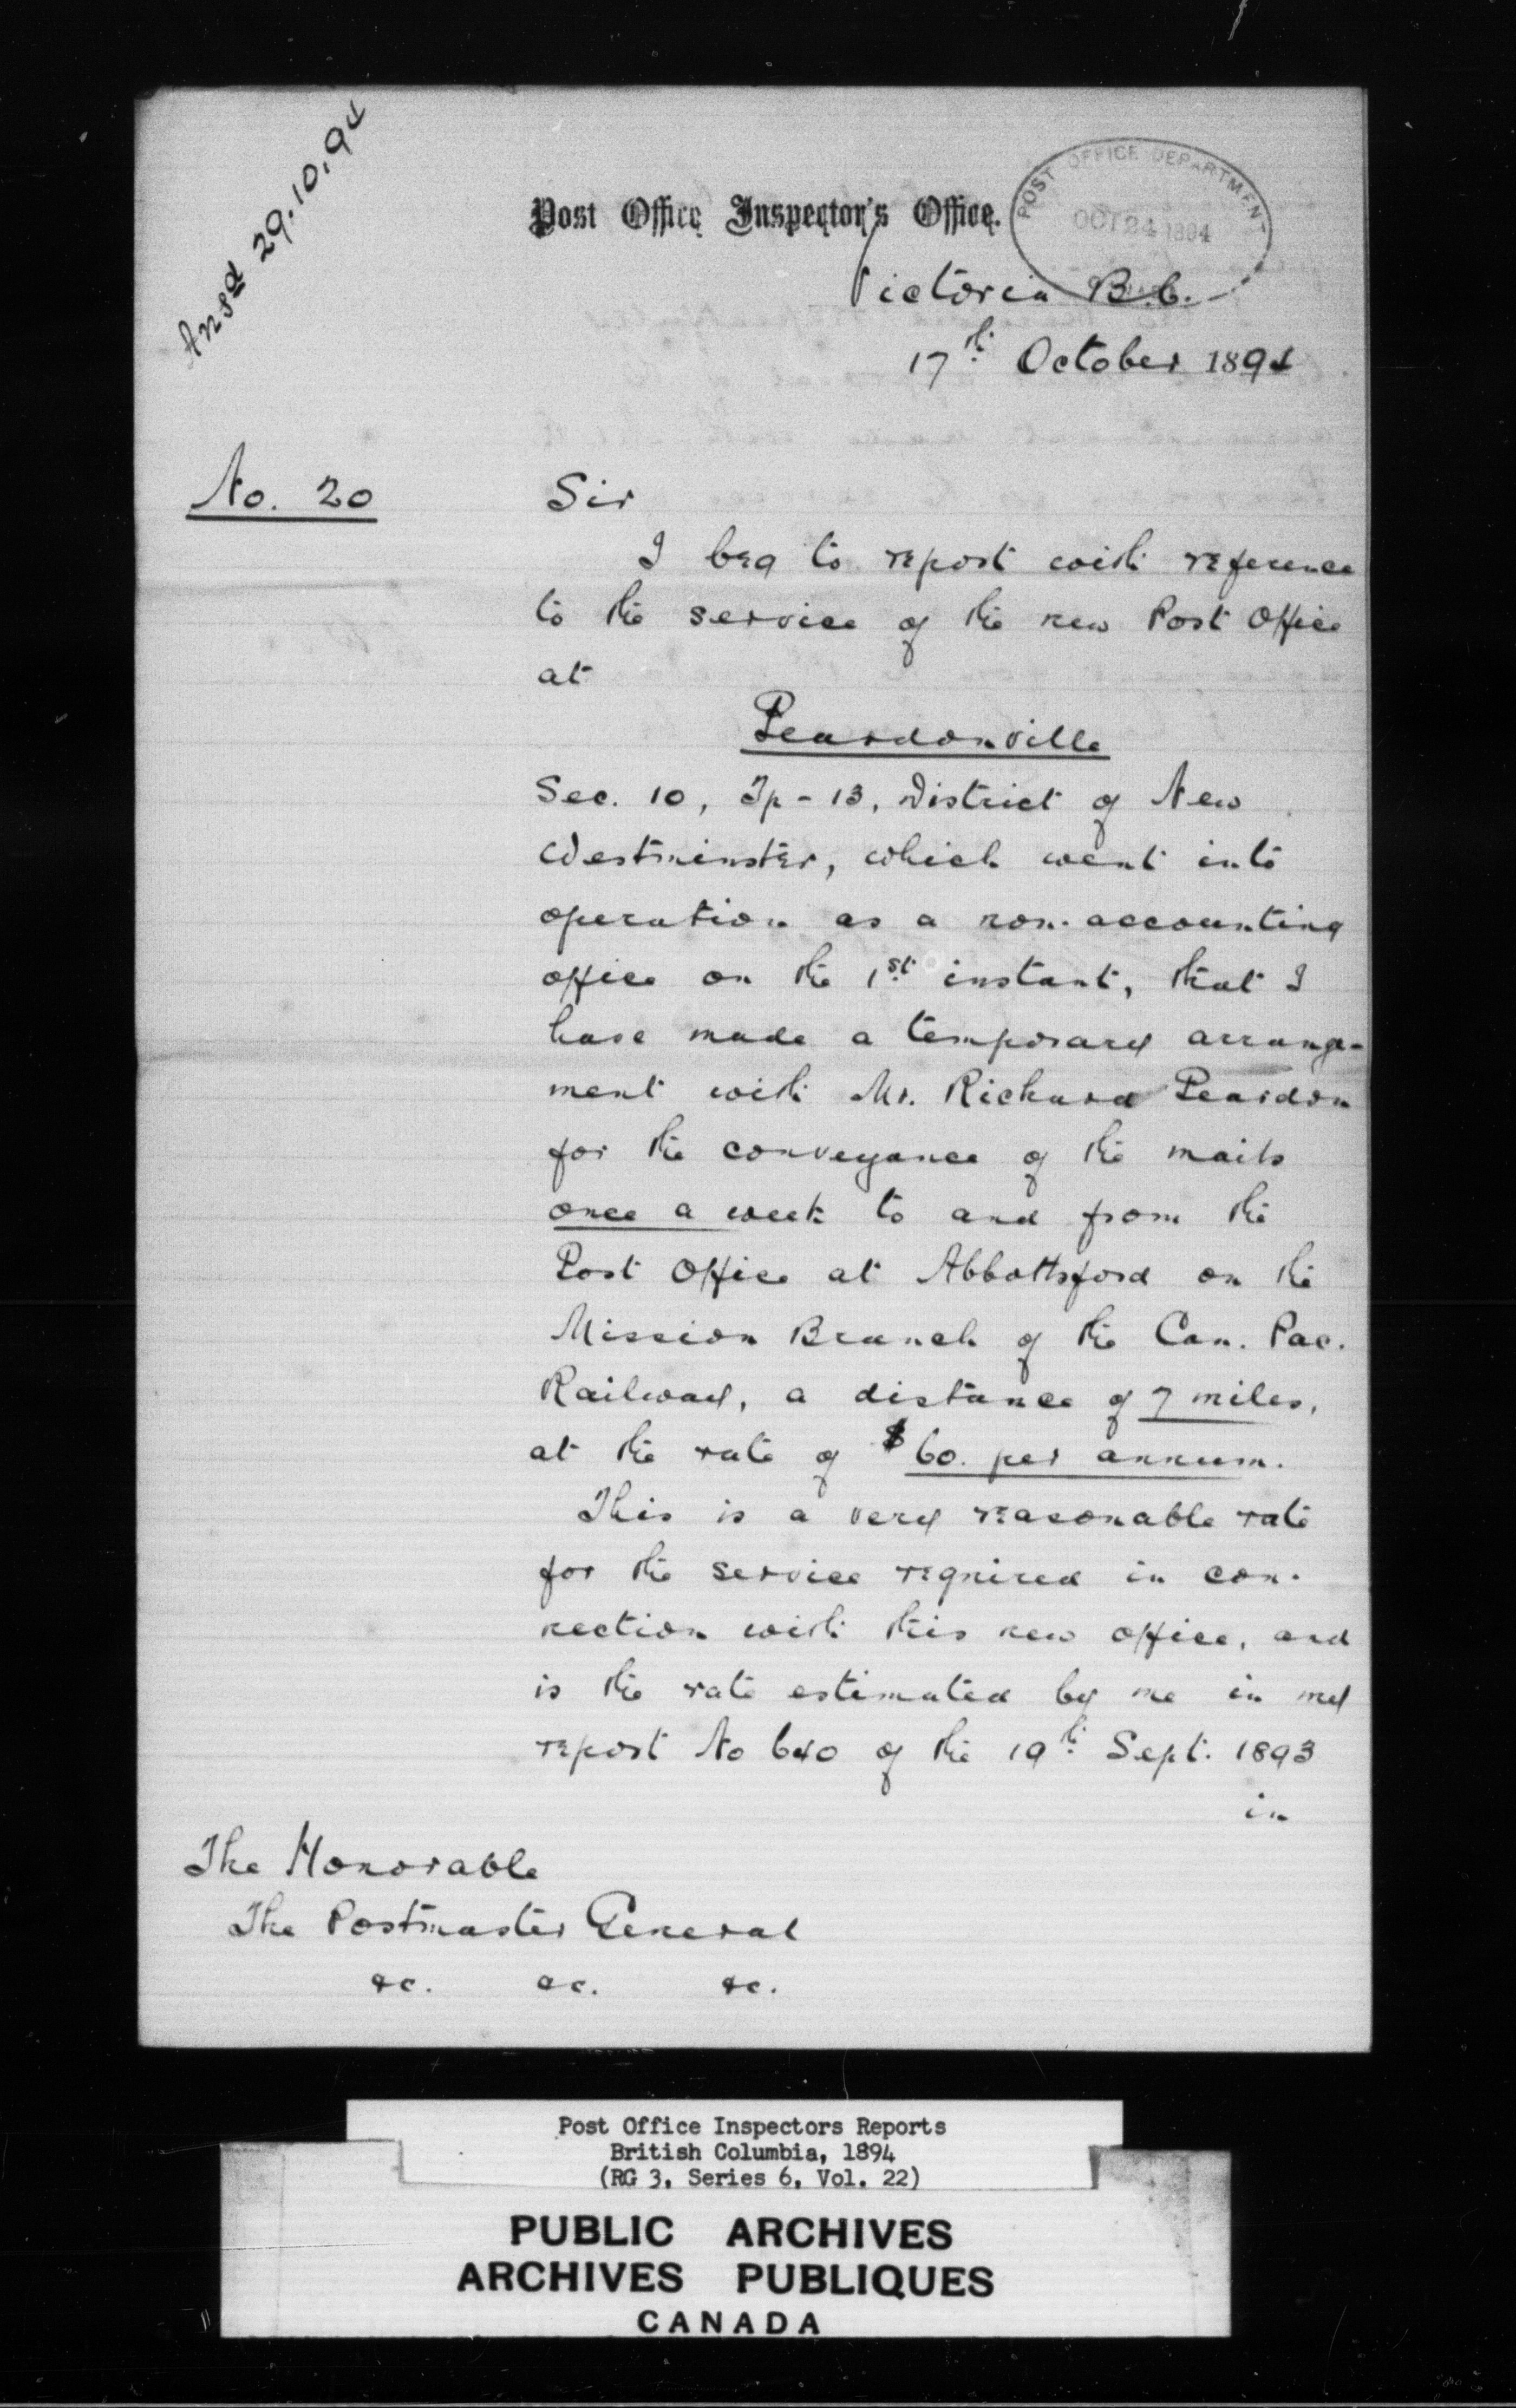 Ansd 29.10.94
Post Office Inspector's Office.
POST OFFICE DEPARTMENT
OCT 24 1894
Victoria B.C.
17th October 1894
No. 20
Sir
I beg to report with reference
to the service of the new Post Office
at
Peardonville
Sec. 10, Tp - 13, District of New
Westminster, which went into
operation as a non-accounting
office on the 1st instant, that I
have made a temporary arrange-
ment with Mr. Richard Peardon
for the conveyance of the mails
once a week to and from the
Post Office at Abbottsford on the
Mission Branch of the Can. Pac.
Railway, a distance of 7 miles,
at the rate of $60. per annum.
This is a very reasonable rate
for the service required in con-
nection with this new office, and
is the rate estimated by me in my
report No 640 of the 19th Sept. 1893
in
The Honorable
The Postmaster General
&c. &c. &c.
Post Office Inspectors Reports
British Columbia, 1894
(RG 3, Series 6, Vol. 22)
PUBLIC ARCHIVES
ARCHIVES PUBLIQUES
CANADA